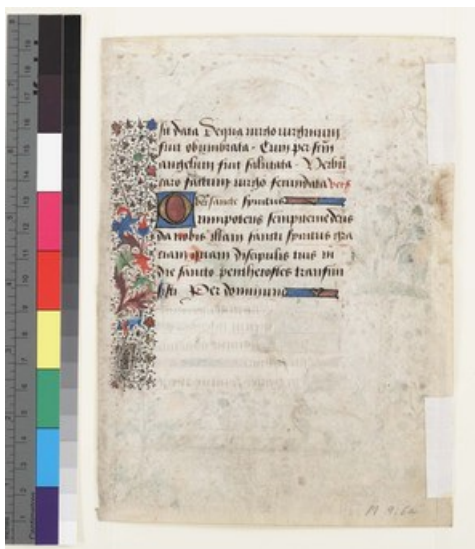 sit data De qua virgo virginum
fuit obumbrata · Cum per
angelum fuit salutata · Verbū
caro factum virgo fecundata vers
sancte spiritus
Omnipotens sempiterne deus
da nobis illam sancti spiritus gra
ciam quam discipulis tuis in
die sancto penthecostes transmi
sisti Per dominum